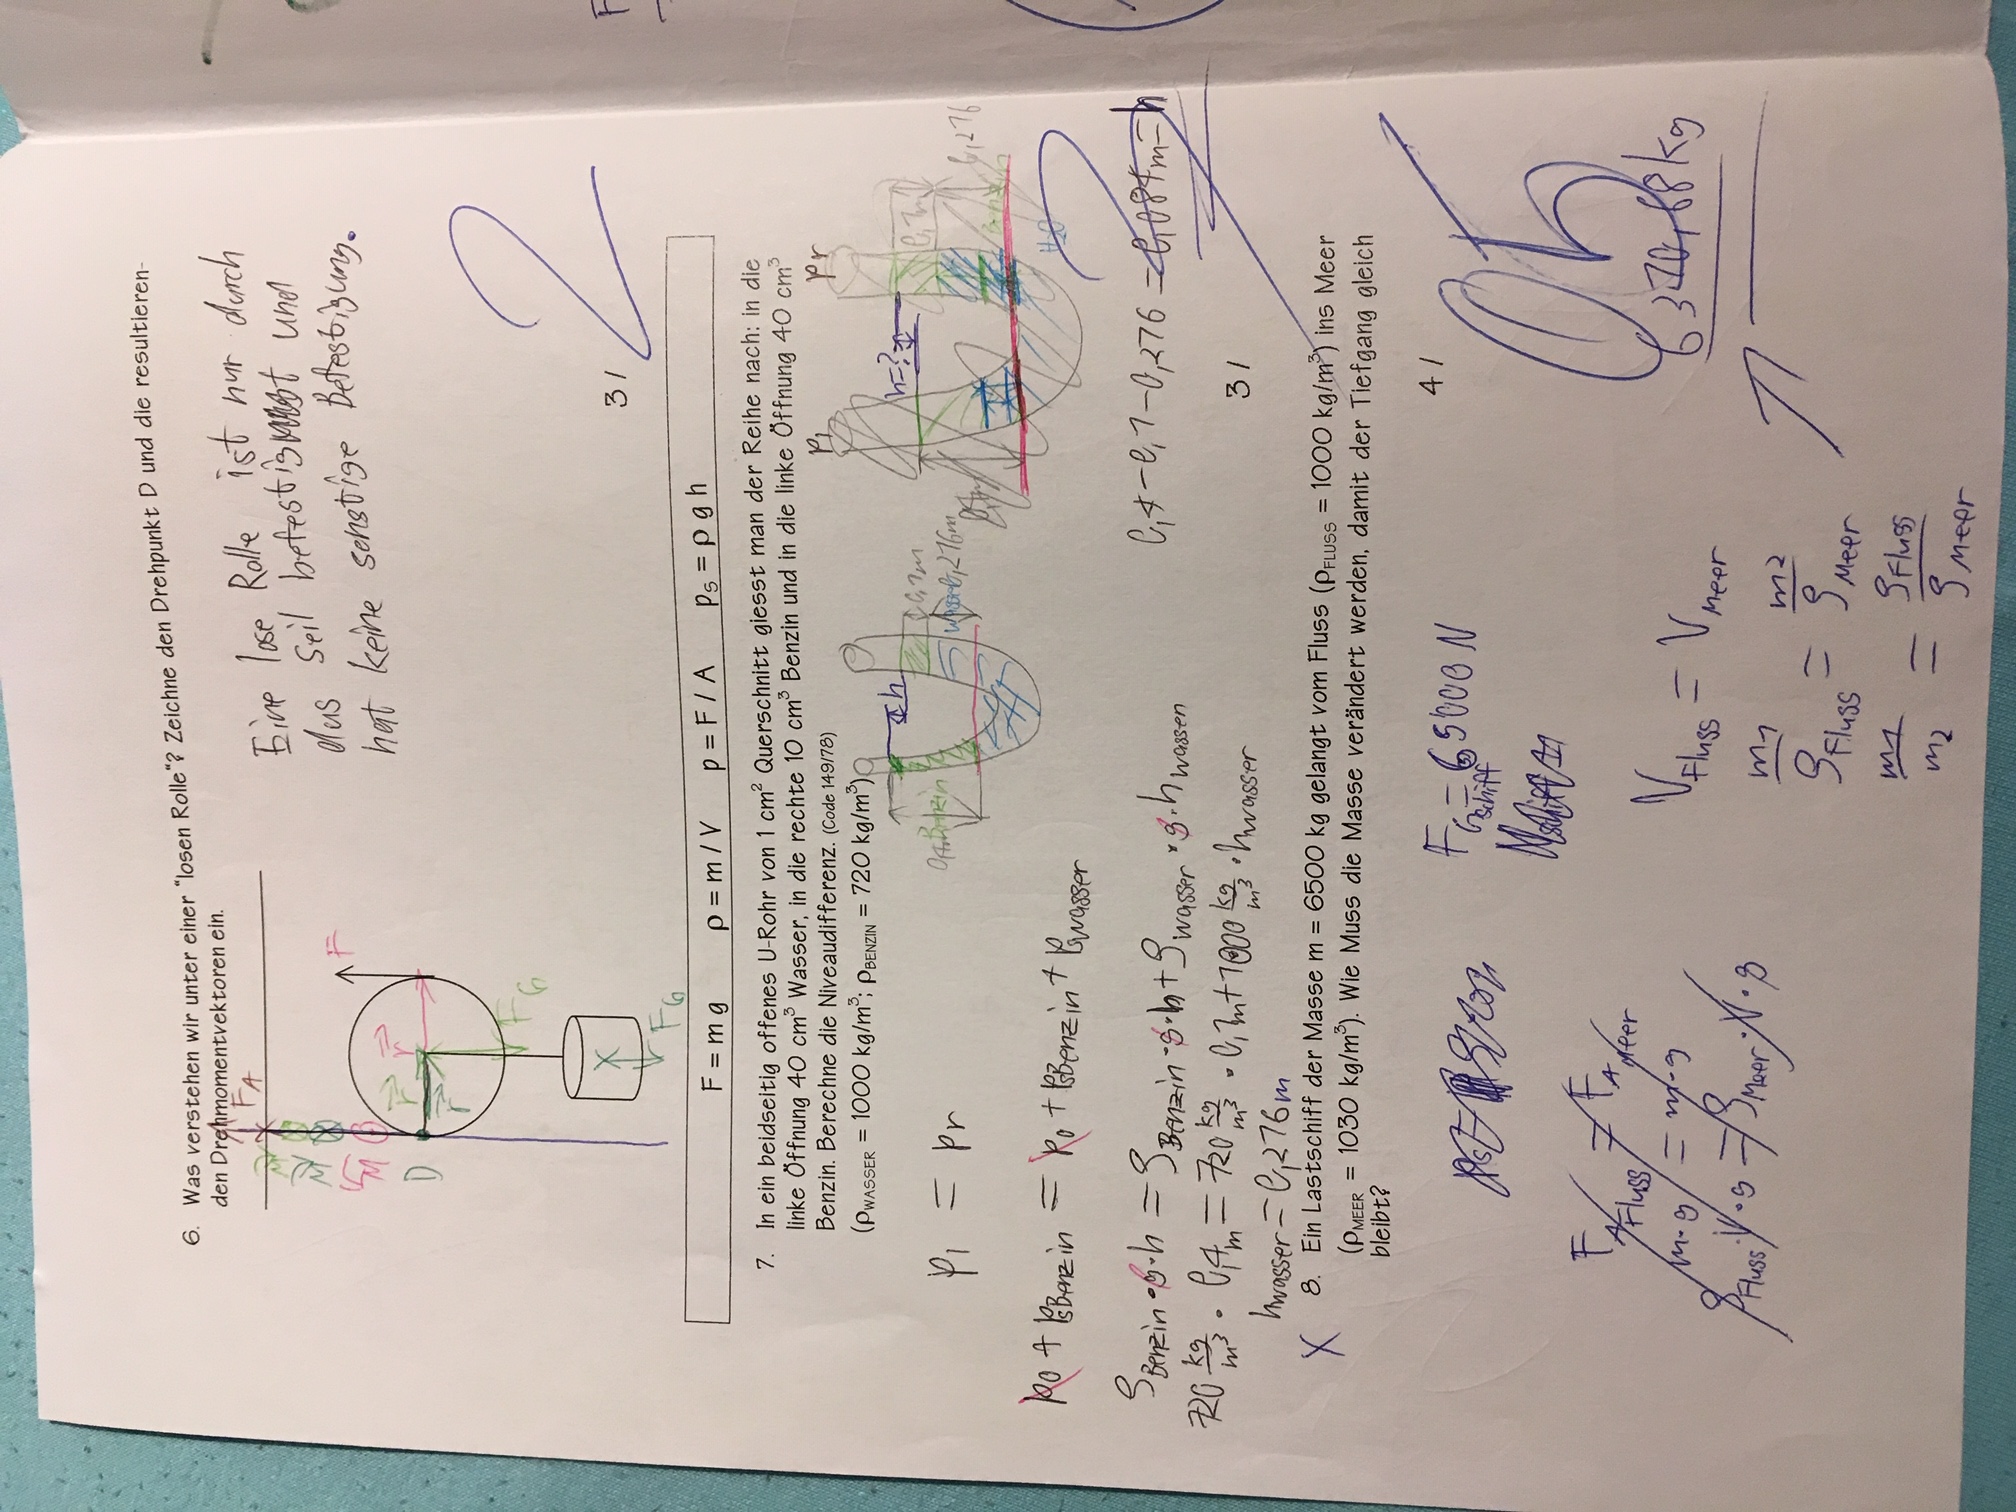 6. Was verstehen wir unter einer "losen Rolle"? Zeichne den Drehpunkt D und die resultieren-
den Drehmomentvektoren ein.
F_A
Eine lose Rolle ist nur durch
das Seil befestigt und
hat keine sonstige Befestigung.
F
M
D
r r
r
F_G
F_G
3 / 2
F = m g ρ = m / V p = F / A p_S = ρ g h
7. In ein beidseitig offenes U-Rohr von 1 cm² Querschnitt giesst man der Reihe nach: in die
linke Öffnung 40 cm³ Wasser, in die rechte 10 cm³ Benzin und in die linke Öffnung 40 cm³
Benzin. Berechne die Niveaudifferenz. (Code 149/78)
(ρ_WASSER = 1000 kg/m³; ρ_BENZIN = 720 kg/m³)
pl pr
h h=?
0,1m 0,1m
Benzin Wasser 0,276m 0,276
Benzin
H₂O
pl = pr
p0 + psBenzin = p0 + psBenzin + pswasser
ρBenzin · g · h = ρBenzin · g · h + ρwasser · g · hwasser
0,4 - 0,1 - 0,276 = 0,084m = h
720 kg/m³ · 0,4m = 720 kg/m³ · 0,1m + 1000 kg/m³ · hwasser
3 /
hwasser = 0,276m
X 8. Ein Lastschiff der Masse m = 6500 kg gelangt vom Fluss (ρ_FLUSS = 1000 kg/m³) ins Meer
(ρ_MEER = 1030 kg/m³). Wie Muss die Masse verändert werden, damit der Tiefgang gleich
bleibt?
4 / 05
F_G schiff = 65000 N
F_A Fluss = F_A Meer
m·g = m·g
ρFluss · V · g = ρMeer · V · g
V Fluss = V Meer
m1/ρFluss = m2/ρMeer
m1/m2 = ρFluss/ρMeer